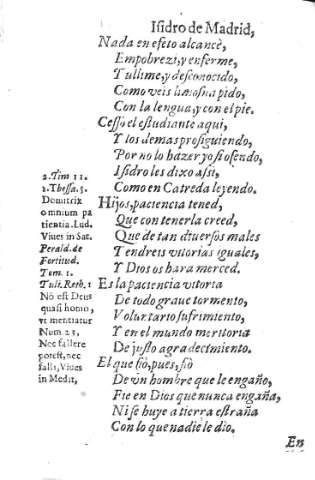 Isidro de Madrid,
Nada en efeto alcancè,
Empobrezi, y enferme,
Tullime, y desconocido,
Como veis limosna pido,
Con la lengua, y con el pie.
Cesso el estudiante aqui,
Y los demas prosiguiendo,
Por no lo hazer yo si ofendo,
Isidro les dixo assi,
Como en Catreda leyendo.
Hijos, paciencia tened,
Que con tenerla creed,
Que de tan diuersos males
Tendreis vitorias iguales,
Y Dios os hara merced.
Es la paciencia vitoria
De todo graue tormento,
Voluntario sufrimiento,
Y en el mundo meritoria
De justo agradecimiento.
El que fiò, pues, fiò
De vn hombre que le engaño,
Fie en Dios que nunca engaña,
Ni se huye a tierra estraña
Con lo que nadie le dio.
2. Tim 11.
1. Thessa. 5.
Demitrix
omnium pa
tientia. Lud.
Viues in Sat.
Perald. de
Fortitud.
Tom. 1.
Tuli. Reth. 1
Nõ est Deus
quasi homo,
vt mentiatur
Num 23.
Nec fallere
potest, nec
falli, Viues
in Medit,
En